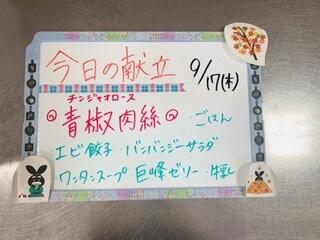 今日の献立
9/17(木)
チンジャオロース
青椒肉絲
・ごはん
・エビ餃子・バンバンジーサラダ
・ワンタンスープ・巨峰ゼリー・牛乳